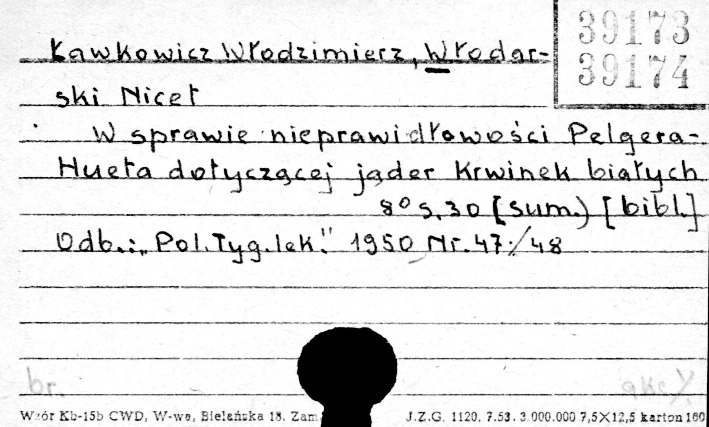 39173
39174
Ławkowicz Włodzimierz, Włodar-
ski Nicet
W sprawie nieprawidłowości Pelgera-
Hueta dotyczącej jąder krwinek białych
8° s. 30 [sum.) [bibl.]
Odb.: „Pol. Tyg. lek." 1950 Nr. 47/48
br.
Wzór Kb-15b CWD, W-wa, Bielańska 18. Zam
J.Z.G. 1120. 7.53. 3.000.000 7,5×12,5 karton 160